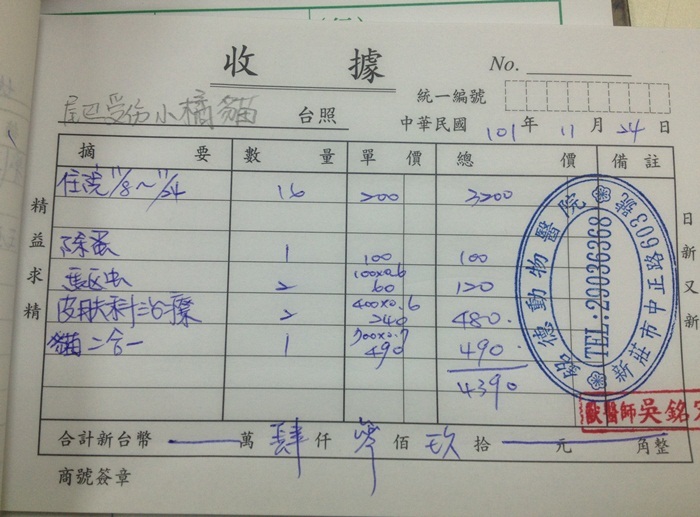 收 據
No.
統一編號
尾巴受伤小橘貓 台照
中華民國 101 年 11 月 24 日
摘 要 數 量 單 價 總 價 備註
住院 11/8～11/24 16 200 3200
除蚤 1 100 100
100x0.6
驅虫 2 60 120
400x0.6
皮肤科治療 2 240 480.
700x0.7
貓二合一 1 490 490.
4390
合計新台幣 萬 肆 仟 佰 玖 拾 元 角整
商號簽章
精益求精
日新又新
德動物醫院
TEL:29036368
新莊市中正路603號
獸醫師 吳銘